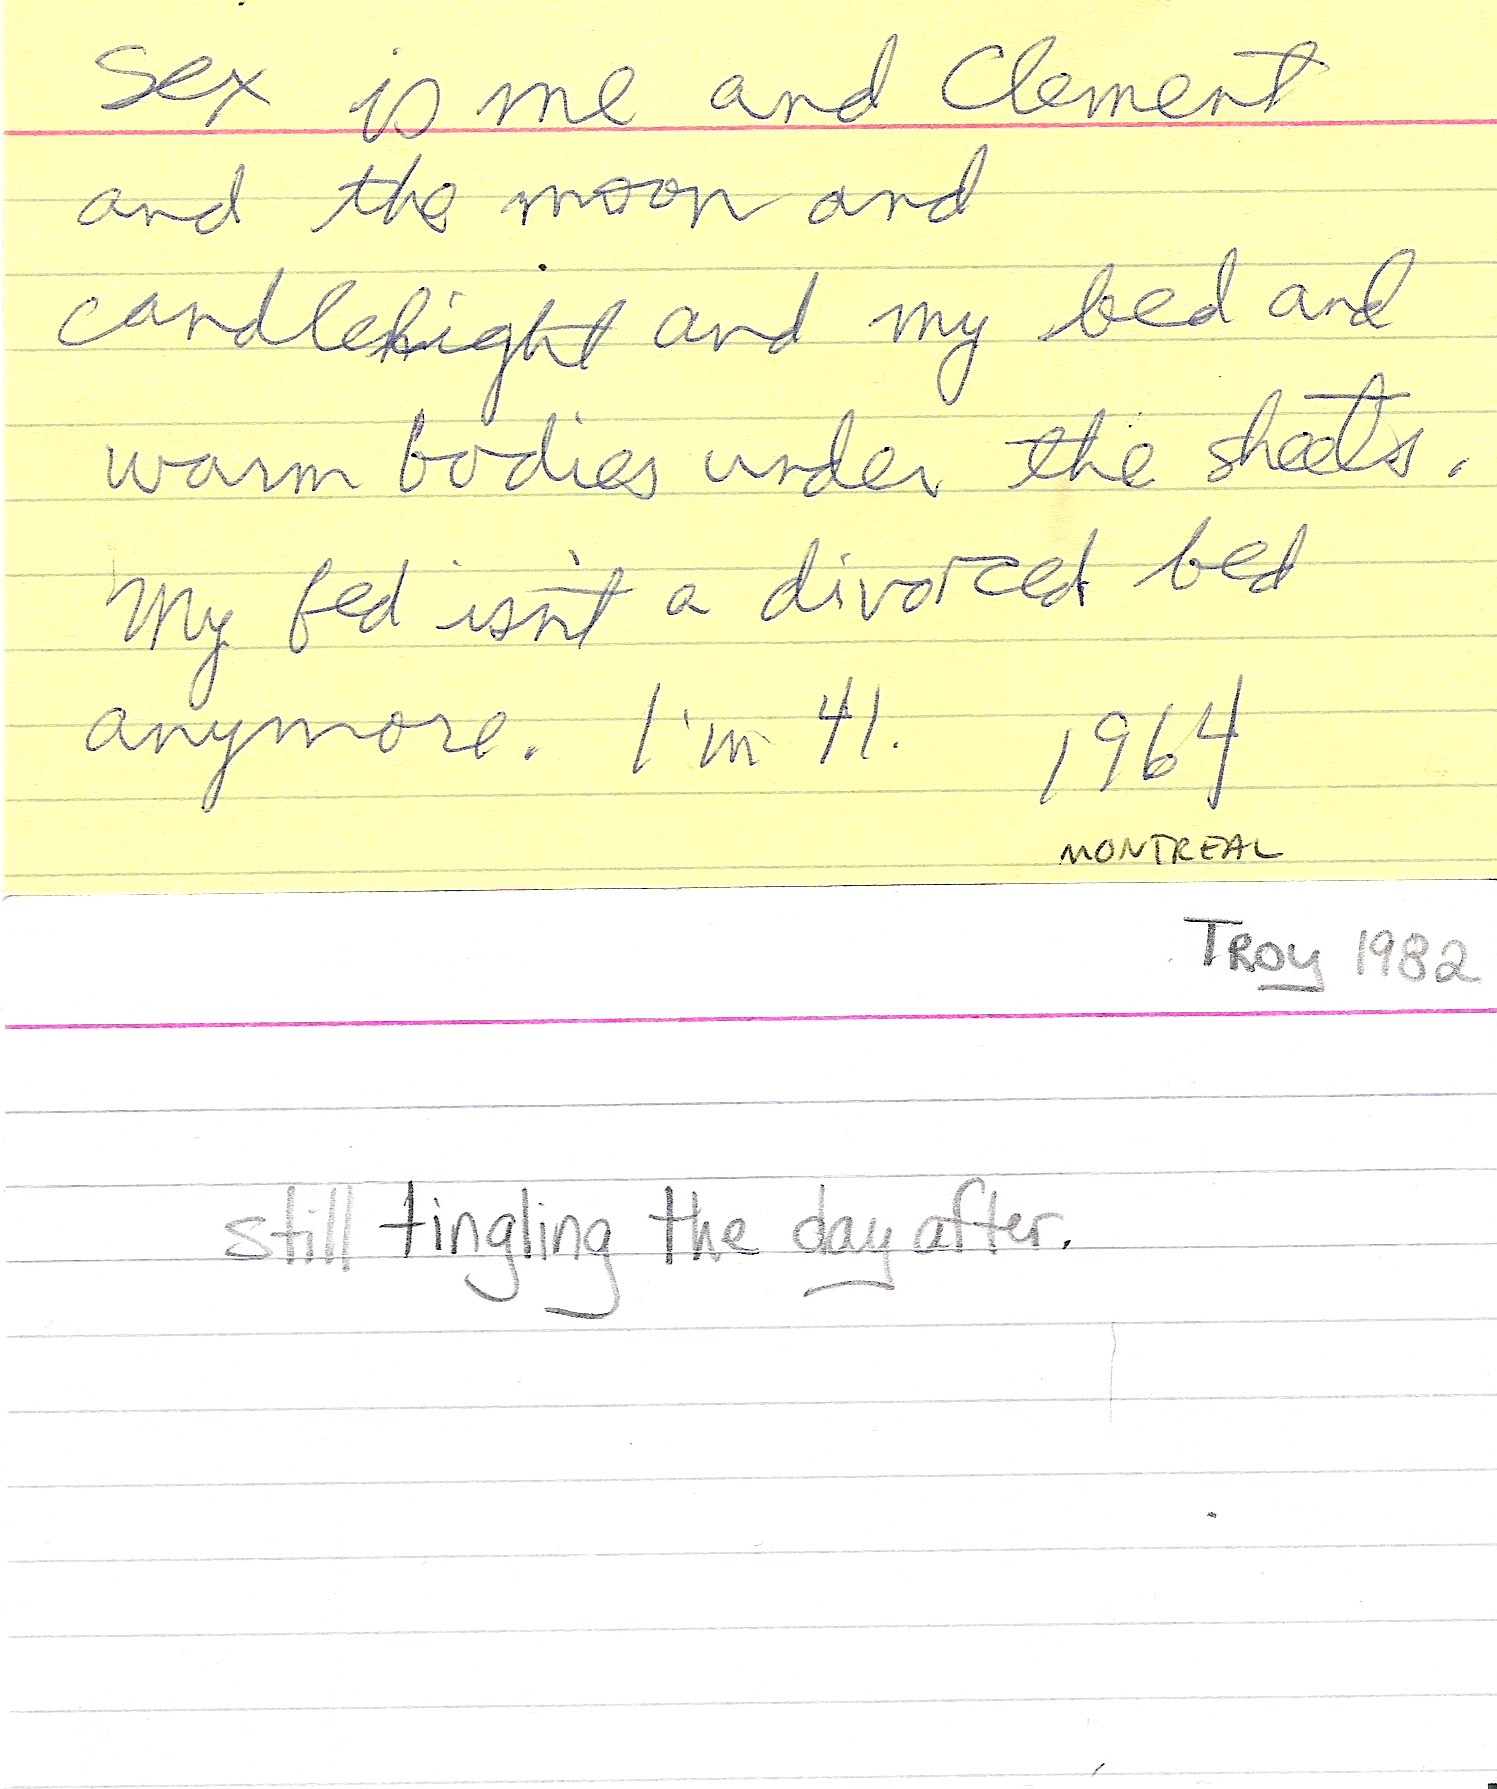 Sex is me and Clement
and the moon and
candlelight and my bed and
warm bodies under the sheets.
My bed isn't a divorced bed
anymore. I'm 41. 1964
MONTREAL
TROY 1982
still tingling the day after.